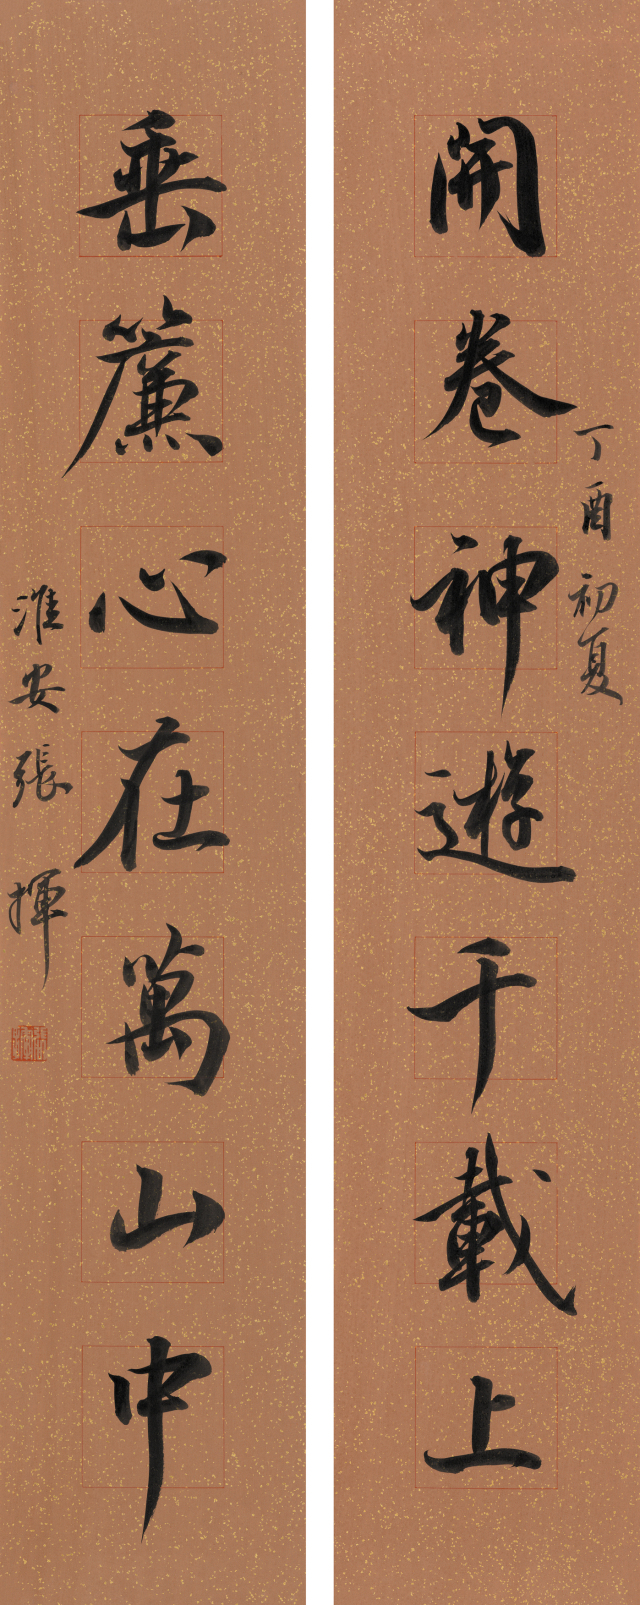 丁酉初夏
開卷神遊千載上
垂簾心在萬山中
淮安張揮